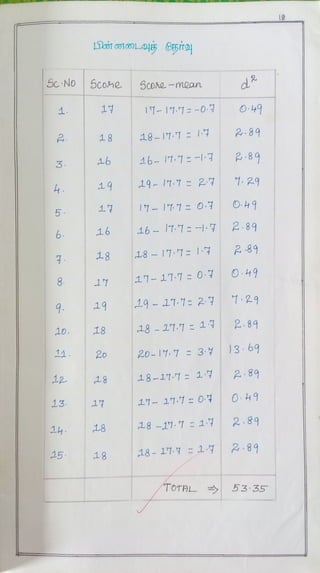 18
பின்னடைவுத் தேர்வு
Sc.No Score Score-mean d²
1. 17 17-17.7=-0.7 0.49
2. 18 18-17.7= 1.7 2.89
3. 16 16-17.7=-1.7 2.89
4. 19 19-17.7= 2.7 7.29
5. 17 17-17.7= 0.7 0.49
6. 16 16-17.7=-1.7 2.89
7. 18 18-17.7= 1.7 2.89
8. 17 17-17.7= 0.7 0.49
9. 19 19-17.7= 2.7 7.29
10. 18 18-17.7= 1.7 2.89
11. 20 20-17.7= 3.7 13.69
12. 18 18-17.7= 1.7 2.89
13. 17 17-17.7= 0.7 0.49
14. 18 18-17.7= 1.7 2.89
15. 18 18-17.7= 1.7 2.89
TOTAL ⇒ 53.35